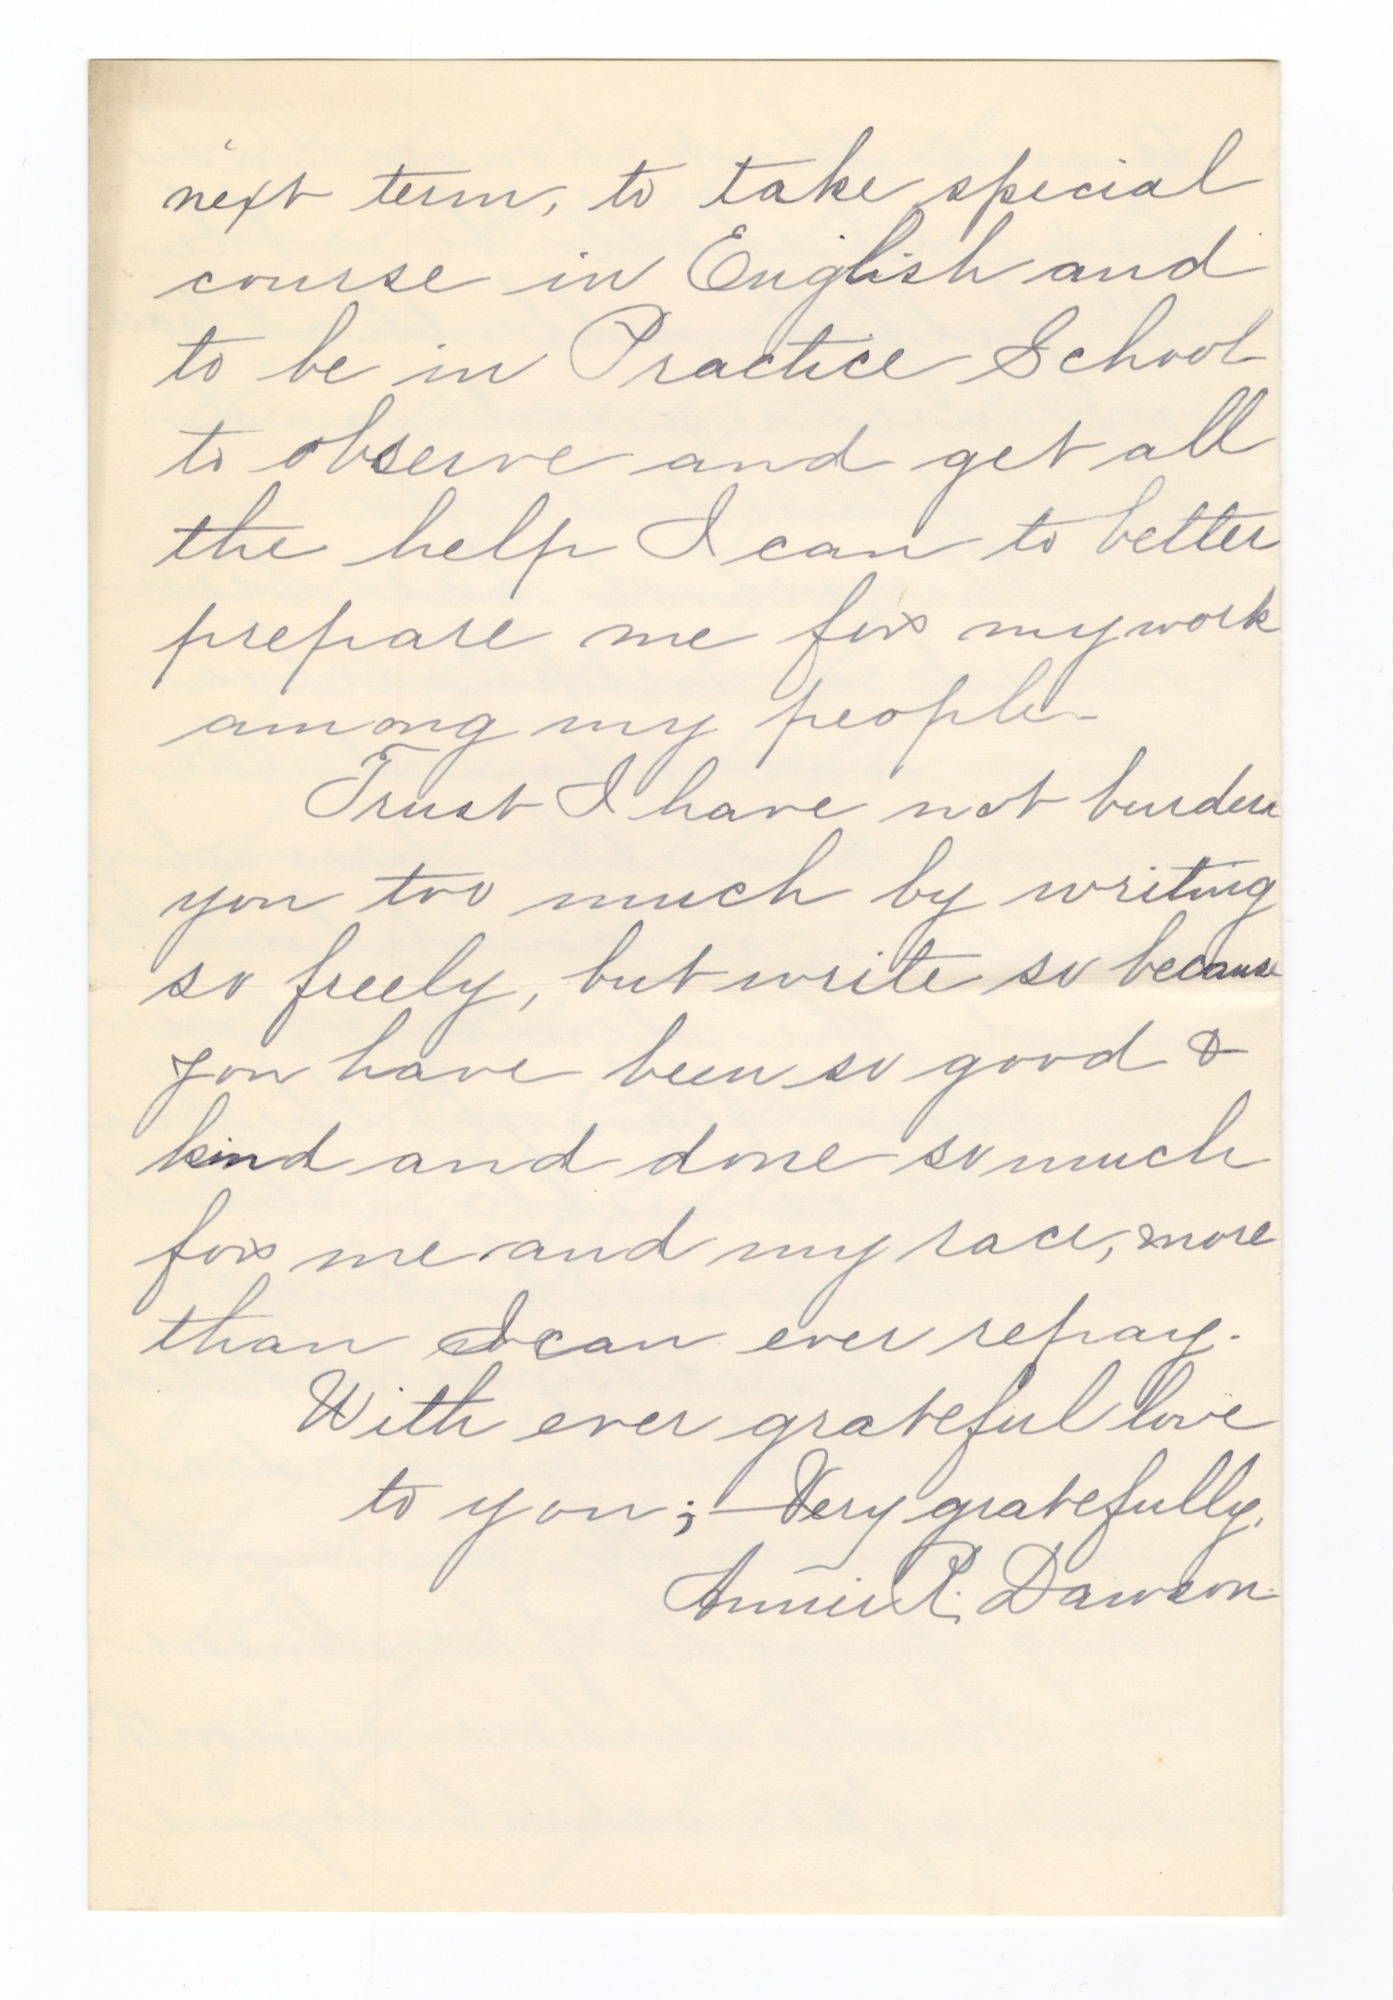 next term, to take special
course in English and
to be in Practice School
to observe and get all
the help I can to better
prepare me for my work
among my people.
Trust I have not burden
you too much by writing
so freely, but write so because
you have been so good &
kind and done so much
for me and my race, more
than I can ever repay.
With ever grateful love
to you; — Very gratefully,
Annie R. Dawson.